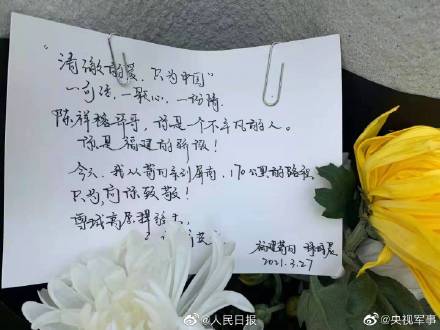 “清澈的爱,只为中国”
一句话,一颗心,一场
陈祥榕哥哥,你是一个不平凡的人。
你是福建的骄傲!
今天,我从莆田来到屏南,170公里的路程
只为,向你致敬!
雪域高原
福建莆田
2021.3.27
@人民日报
@央视军事